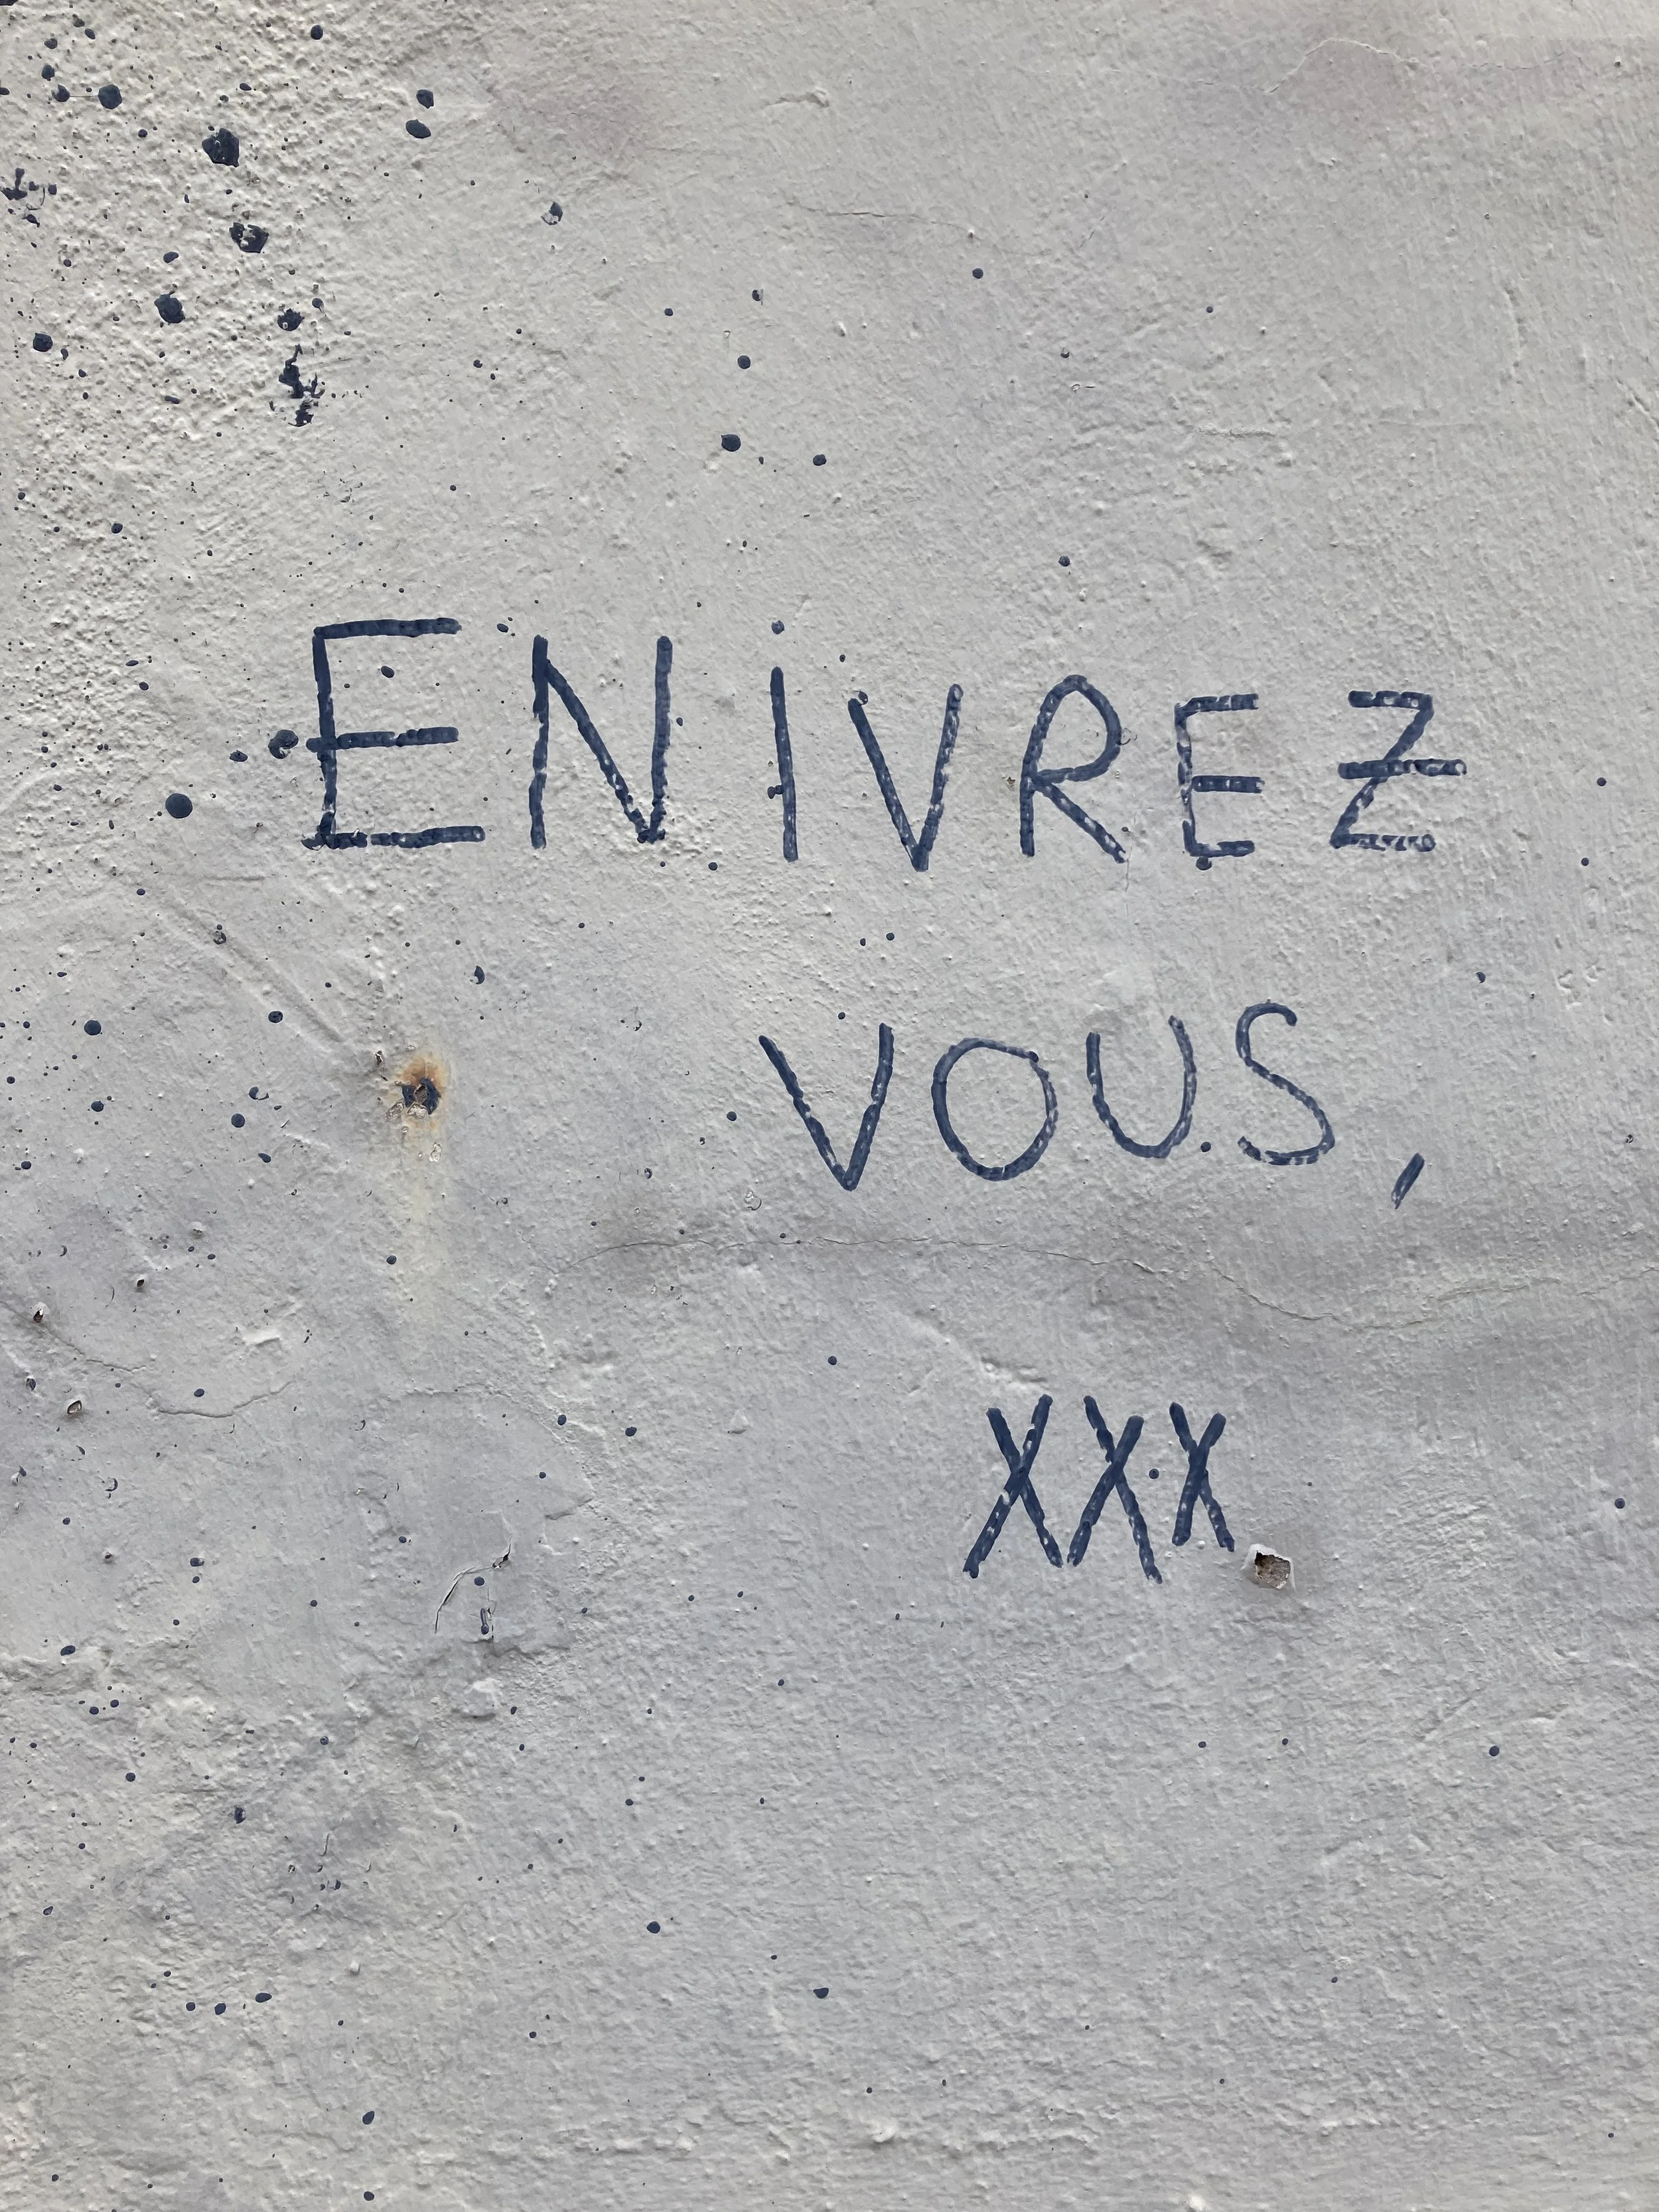 ENIVREZ
VOUS,
XXX